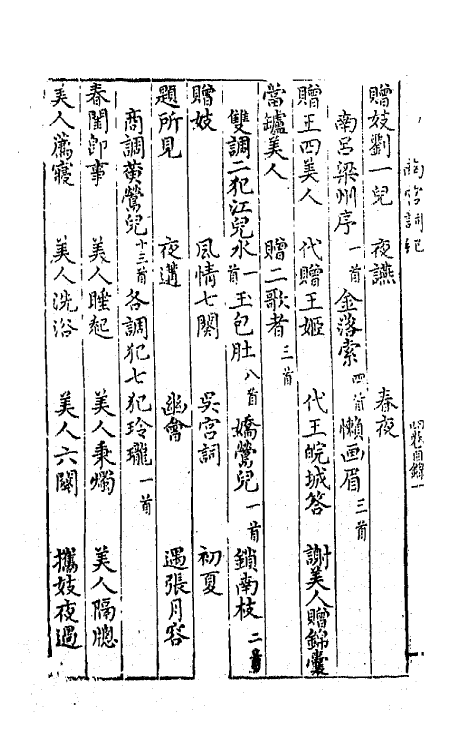 贈妓劉一兒　夜讌　春夜
南呂梁州序一首　金落索四首　懶画眉三首
贈王四美人　代贈王姬　代王皖城答　謝美人贈錦囊
當罏美人　贈二歌者三首
雙調二犯江兒水一首　玉包肚八首　嬌鶯兒一首　鎖南枝二首
贈妓　風情七闋　吳宮詞　初夏
題所見　夜遘　幽會　遇張月容
商調黄鶯兒十三首　各調犯七犯玲瓏一首
春閨即事　美人睡起　美人秉燭　美人隔牕
美人薦寢　美人洗浴　美人六闋　攜妓夜過